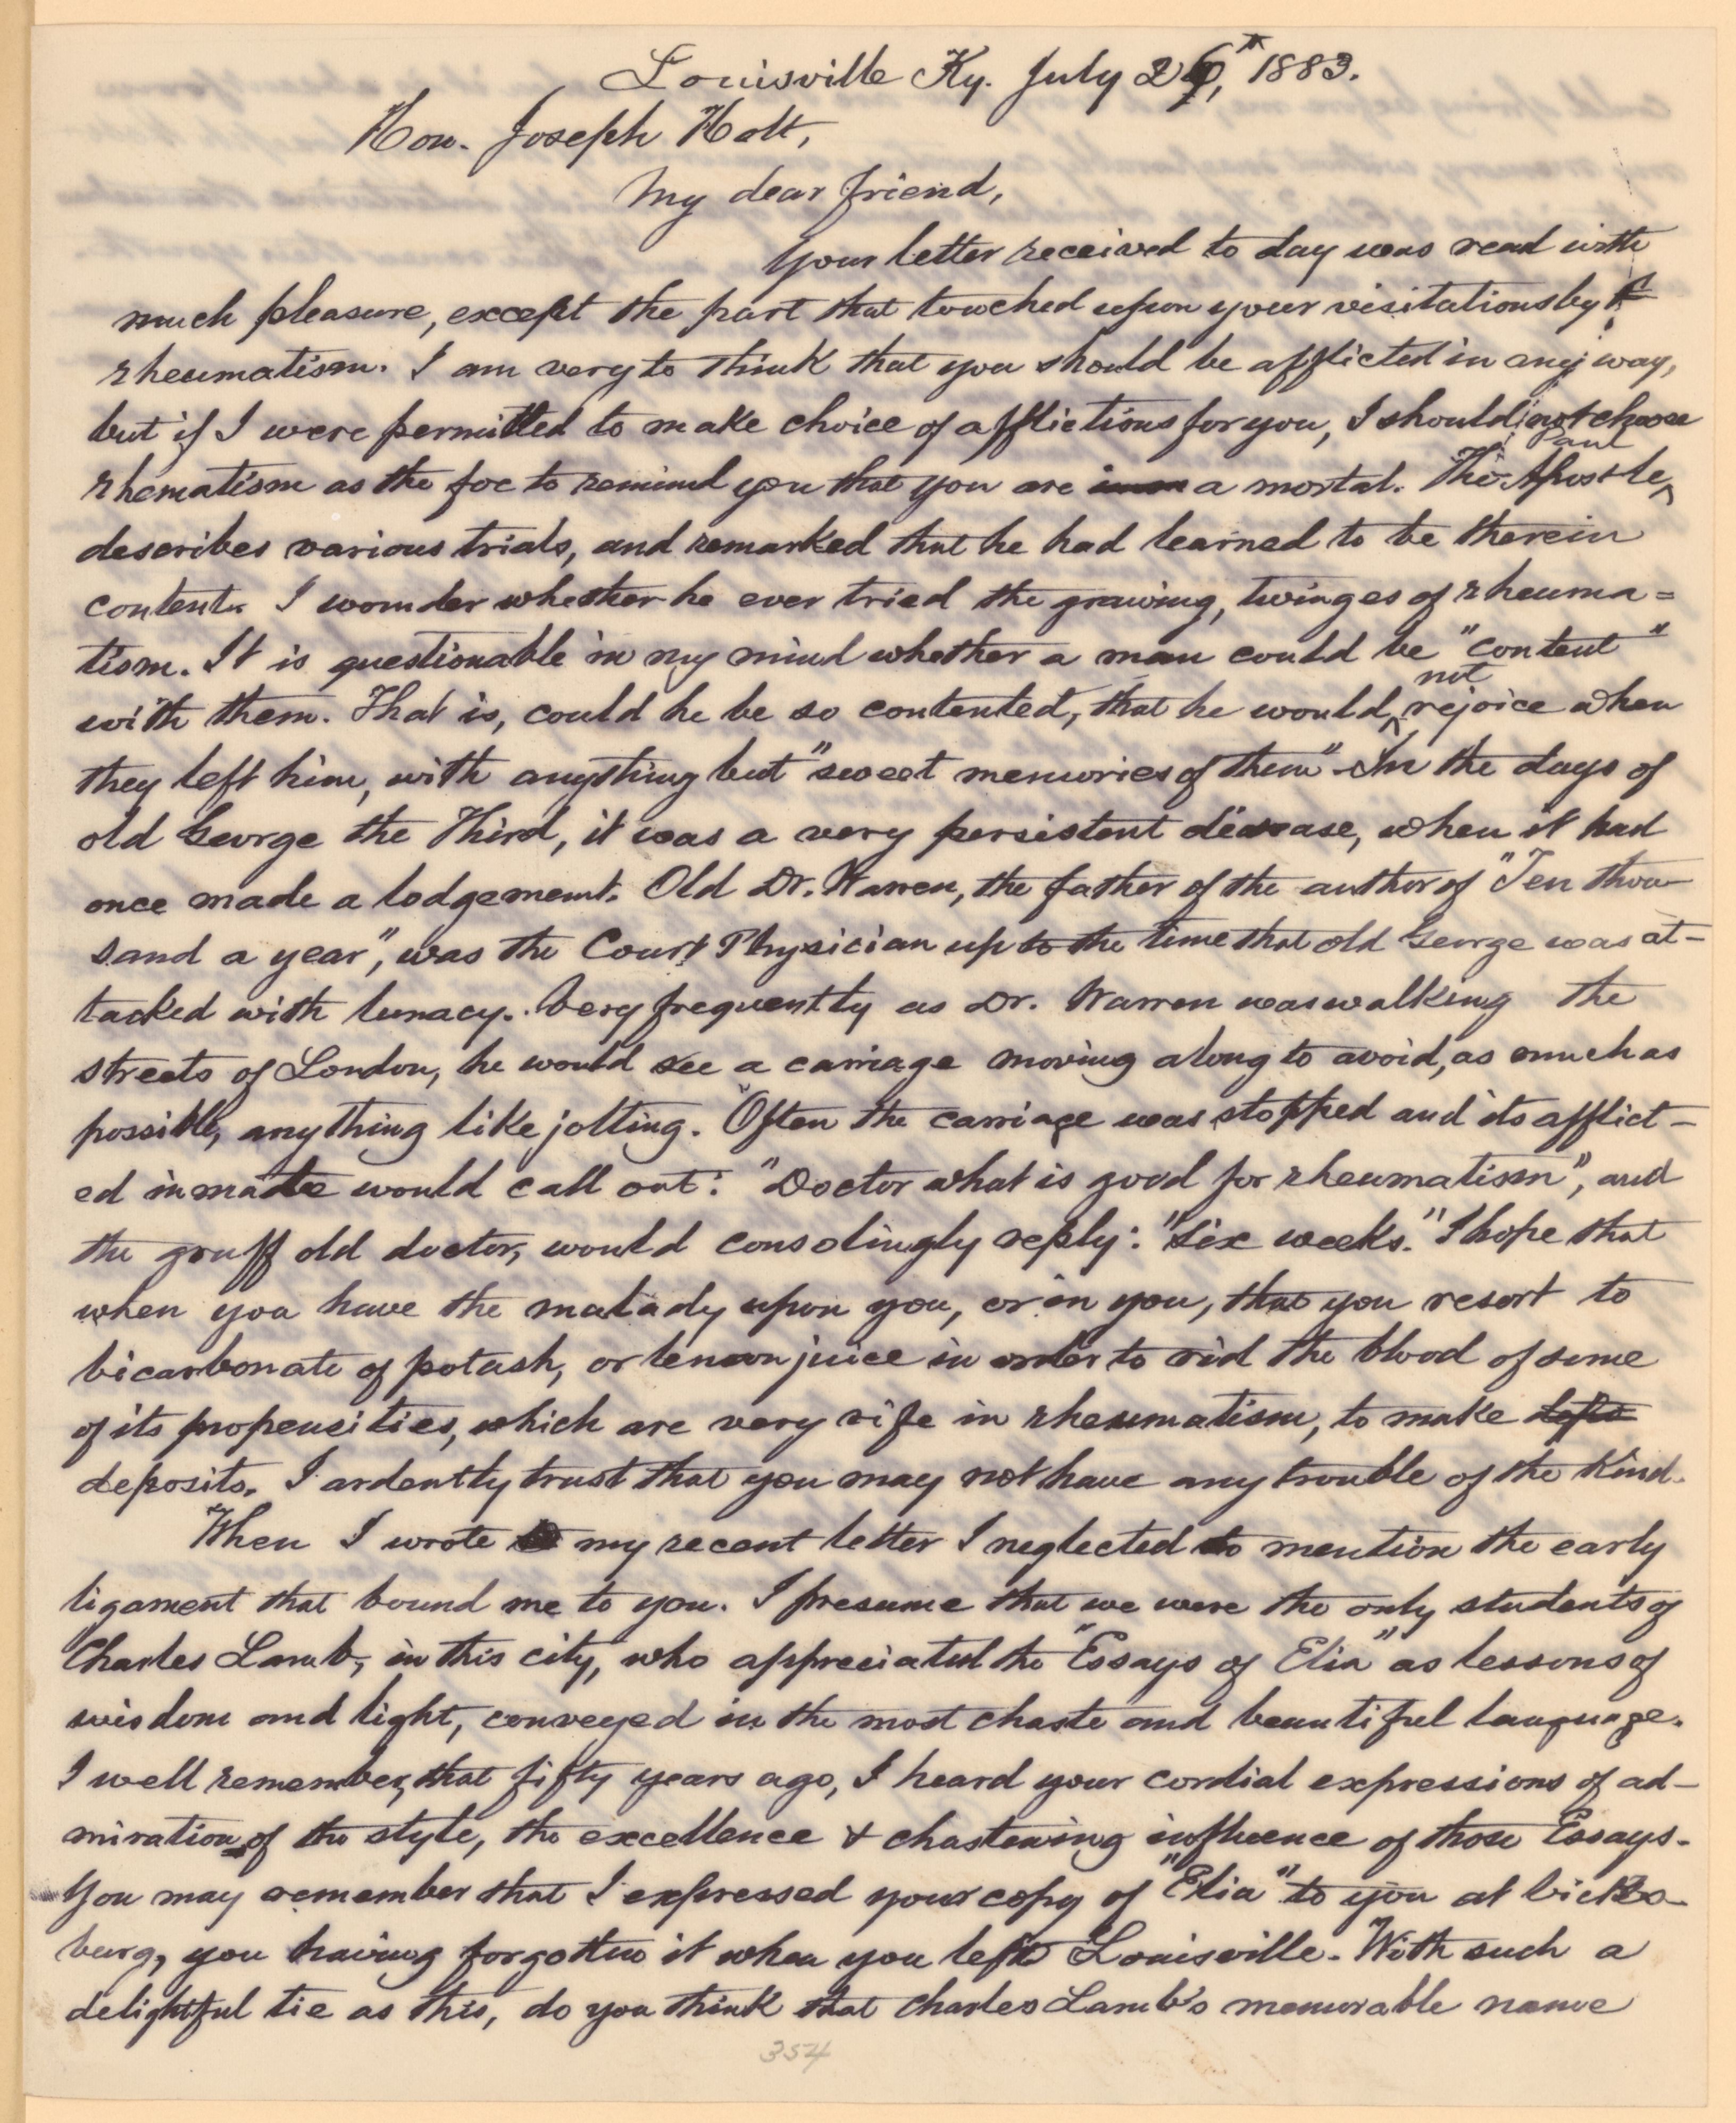 Louisville Ky. July 26th, 1883.
Hon. Joseph Holt,
My dear friend,
Your letter received to day was read with
much pleasure, except the part that touched upon your visitations by
rheumatism. I am very to think that you should be afflicted in any way,
but if I were permitted to make choice of afflictions for you, I should not choose
rhematism as the foe to remind you that you are a mortal. The Apostle Paul
describes various trials, and remarked that he had learned to be therein
content. I wonder whether he ever tried the grawing, twinges of rheuma=
tism. It is questionable in my mind whether a man could be "content"
with them. That is, could he be so contented, that he would not rejoice when
they left him, with anything but "sweet memories of them". In the days of
old George the Third, it was a very persistent disease, when it had
once made a lodgement. Old Dr. Warren, the father of the author of "Ten thou-
sand a year", was the Court Physician up to the time that old George was at-
tacked with lunacy. Very frequently as Dr. Warren was walking the
streets of London, he would see a carriage moving along to avoid, as much as
possible, anything like jolting. Often the carriage was stopped and its afflict-
ed inmate would call out: "Doctor what is good for rheumatism", and
the gruff old doctor, would consolingly reply: "Six weeks." I hope that
when you have the malady upon you, or in you, that you resort to
bicarbonate of potash, or lemon juice in order to rid the blood of some
of its propensities, which are very rife in rheumatism, to make depo
deposits. I ardently trust that you may not have any trouble of the kind.
When I wrote my recent letter I neglected to mention the early
ligament that bound me to you. I presume that we were the only students of
Charles Lamb, in this city, who appreciated the "Essays of Elia" as lessons of
wisdom and light, conveyed in the most chaste and beautiful language.
I well remember, that fifty years ago, I heard your cordial expressions of ad-
miration of the style, the excellence & chastening influence of those Essays.
You may remember that I expressed your copy of "Elia" to you at Vicks-
burg, you having forgotten it when you left Louisville. With such a
delightful tie as this, do you think that Charles Lamb's memorable name
354